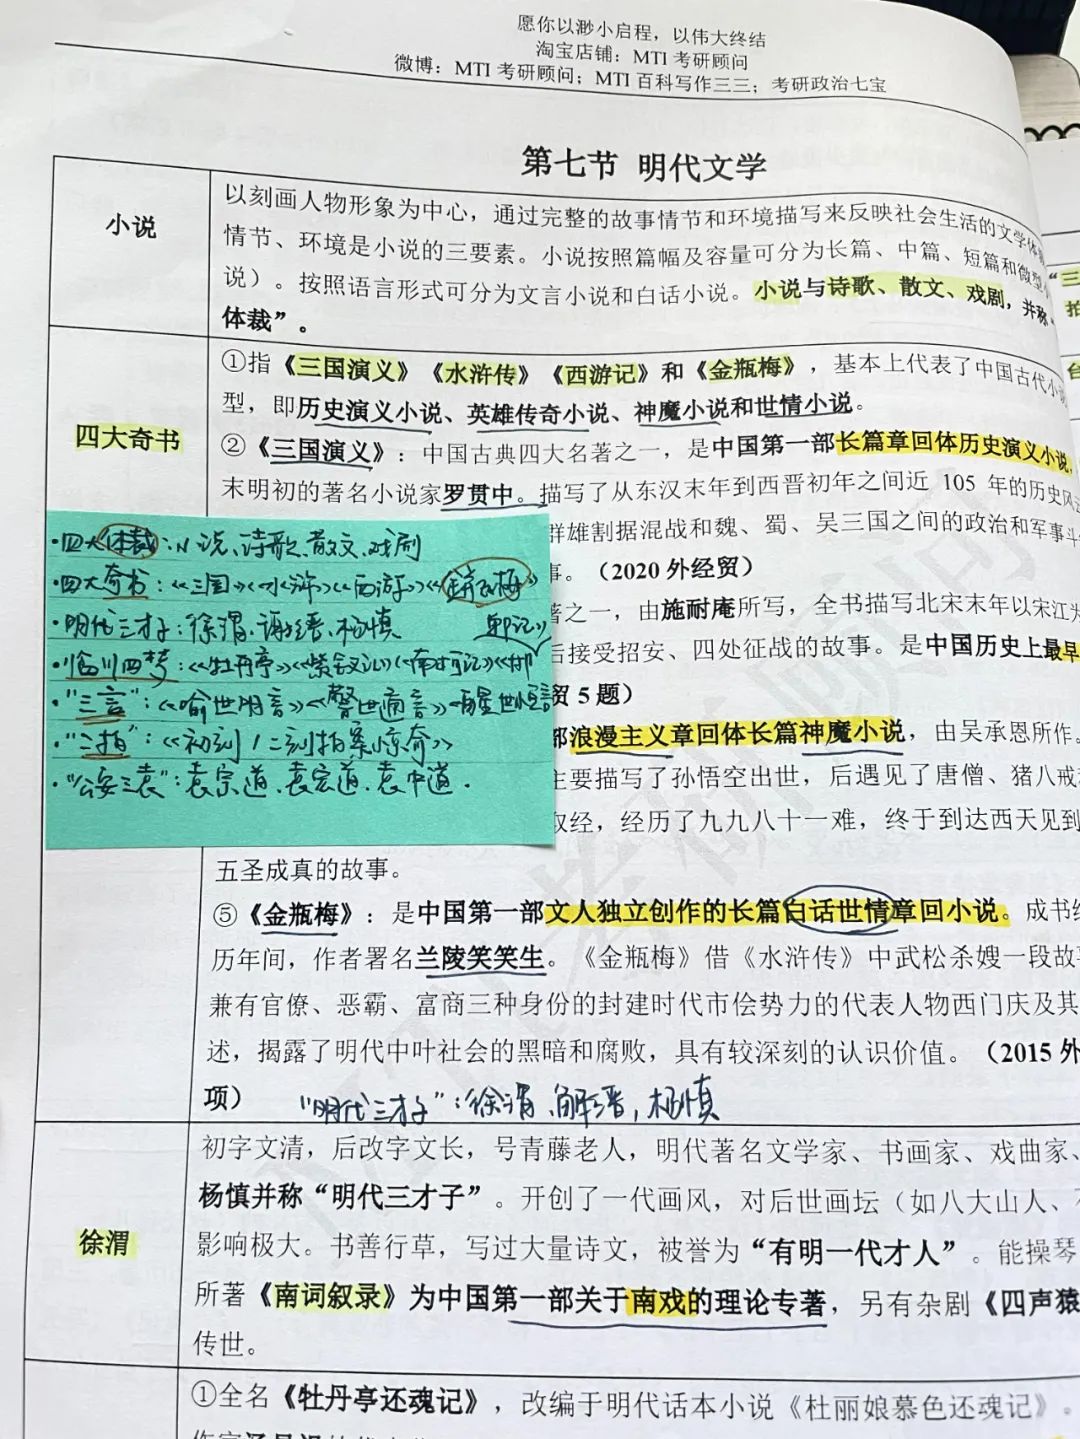 愿你以渺小启程，以伟大终结
淘宝店铺：MTI 考研顾问
微博：MTI 考研顾问；MTI 百科写作三三；考研政治七宝
第七节 明代文学
小说
以刻画人物形象为中心，通过完整的故事情节和环境描写来反映社会生活的文学体
情节、环境是小说的三要素。小说按照篇幅及容量可分为长篇、中篇、短篇和微型
说）。按照语言形式可分为文言小说和白话小说。小说与诗歌、散文、戏剧，并称“
体裁”。
四大奇书
①指《三国演义》《水浒传》《西游记》和《金瓶梅》，基本上代表了中国古代小
型，即历史演义小说、英雄传奇小说、神魔小说和世情小说。
②《三国演义》：中国古典四大名著之一，是中国第一部长篇章回体历史演义小说，
末明初的著名小说家罗贯中。描写了从东汉末年到西晋初年之间近 105 年的历史风
群雄割据混战和魏、蜀、吴三国之间的政治和军事斗
事。（2020 外经贸）
著之一，由施耐庵所写，全书描写北宋末年以宋江为
后接受招安、四处征战的故事。是中国历史上最早
贸 5 题）
部浪漫主义章回体长篇神魔小说，由吴承恩所作。
主要描写了孙悟空出世，后遇见了唐僧、猪八戒
取经，经历了九九八十一难，终于到达西天见到
五圣成真的故事。
⑤《金瓶梅》：是中国第一部文人独立创作的长篇白话世情章回小说。成书约
历年间，作者署名兰陵笑笑生。《金瓶梅》借《水浒传》中武松杀嫂一段故事
兼有官僚、恶霸、富商三种身份的封建时代市侩势力的代表人物西门庆及其
述，揭露了明代中叶社会的黑暗和腐败，具有较深刻的认识价值。（2015 外
项）
“明代三才子”：徐渭、解缙，杨慎
·四大体裁：小说、诗歌、散文、戏剧
·四大奇书：《三国》《水浒》《西游》《金瓶梅》
·明代三才子：徐渭、解缙、杨慎
·临川四梦：《牡丹亭》《紫钗记》《南柯记》《邯郸记》
·“三言”：《喻世明言》《警世通言》《醒世恒言
·“二拍”：《初刻/二刻拍案惊奇》
·“公安三袁”：袁宗道、袁宏道、袁中道．
徐渭
初字文清，后改字文长，号青藤老人，明代著名文学家、书画家、戏曲家、
杨慎并称“明代三才子”。开创了一代画风，对后世画坛（如八大山人、
影响极大。书善行草，写过大量诗文，被誉为“有明一代才人”。能操琴
所著《南词叙录》为中国第一部关于南戏的理论专著，另有杂剧《四声猿
传世。
①全名《牡丹亭还魂记》，改编于明代话本小说《杜丽娘慕色还魂记》。